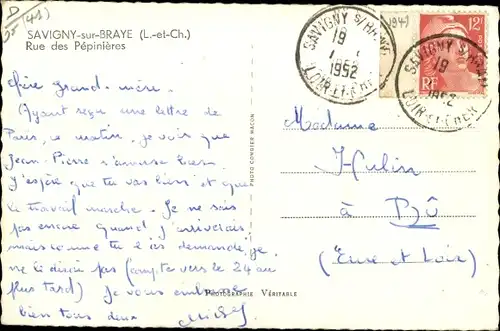 D
SAVIGNY-sur-BRAYE (L.-et-Ch.)
Rue des Pépinières
SAVIGNY S/BRAYE
19
1952
LOIR-ET-CHER
12F
RF
SAVIGNY S/BRAYE
19
1952
LOIR-ET-CHER
grand-mère.
Ayant reçu une lettre de
Paris, ce matin, je vois que
Jean-Pierre s'amuse bien
J'espère que tu vas bien et que
le travail marche. Je ne sais
pas encore quand j'arriverais
mais comme tu me le demandais, je
ne le dirai pas (compte vers le 24 au
plus tard) Je vous embrasse
bien tous deux
PHOTO COMBIER MACON
PHOTOGRAPHIE VÉRITABLE
Madame
Hulin
à Bû
(Eure et Loir)